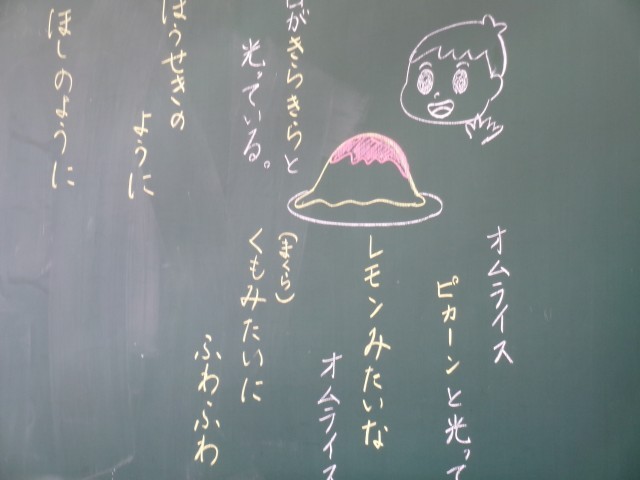 オムライス
ピカーンと光って
レモンみたいな
オムライス
(まくら)
くもみたいに
ふわふわ
がきらきらと
光っている。
ほうせきの
ように
ほしのように